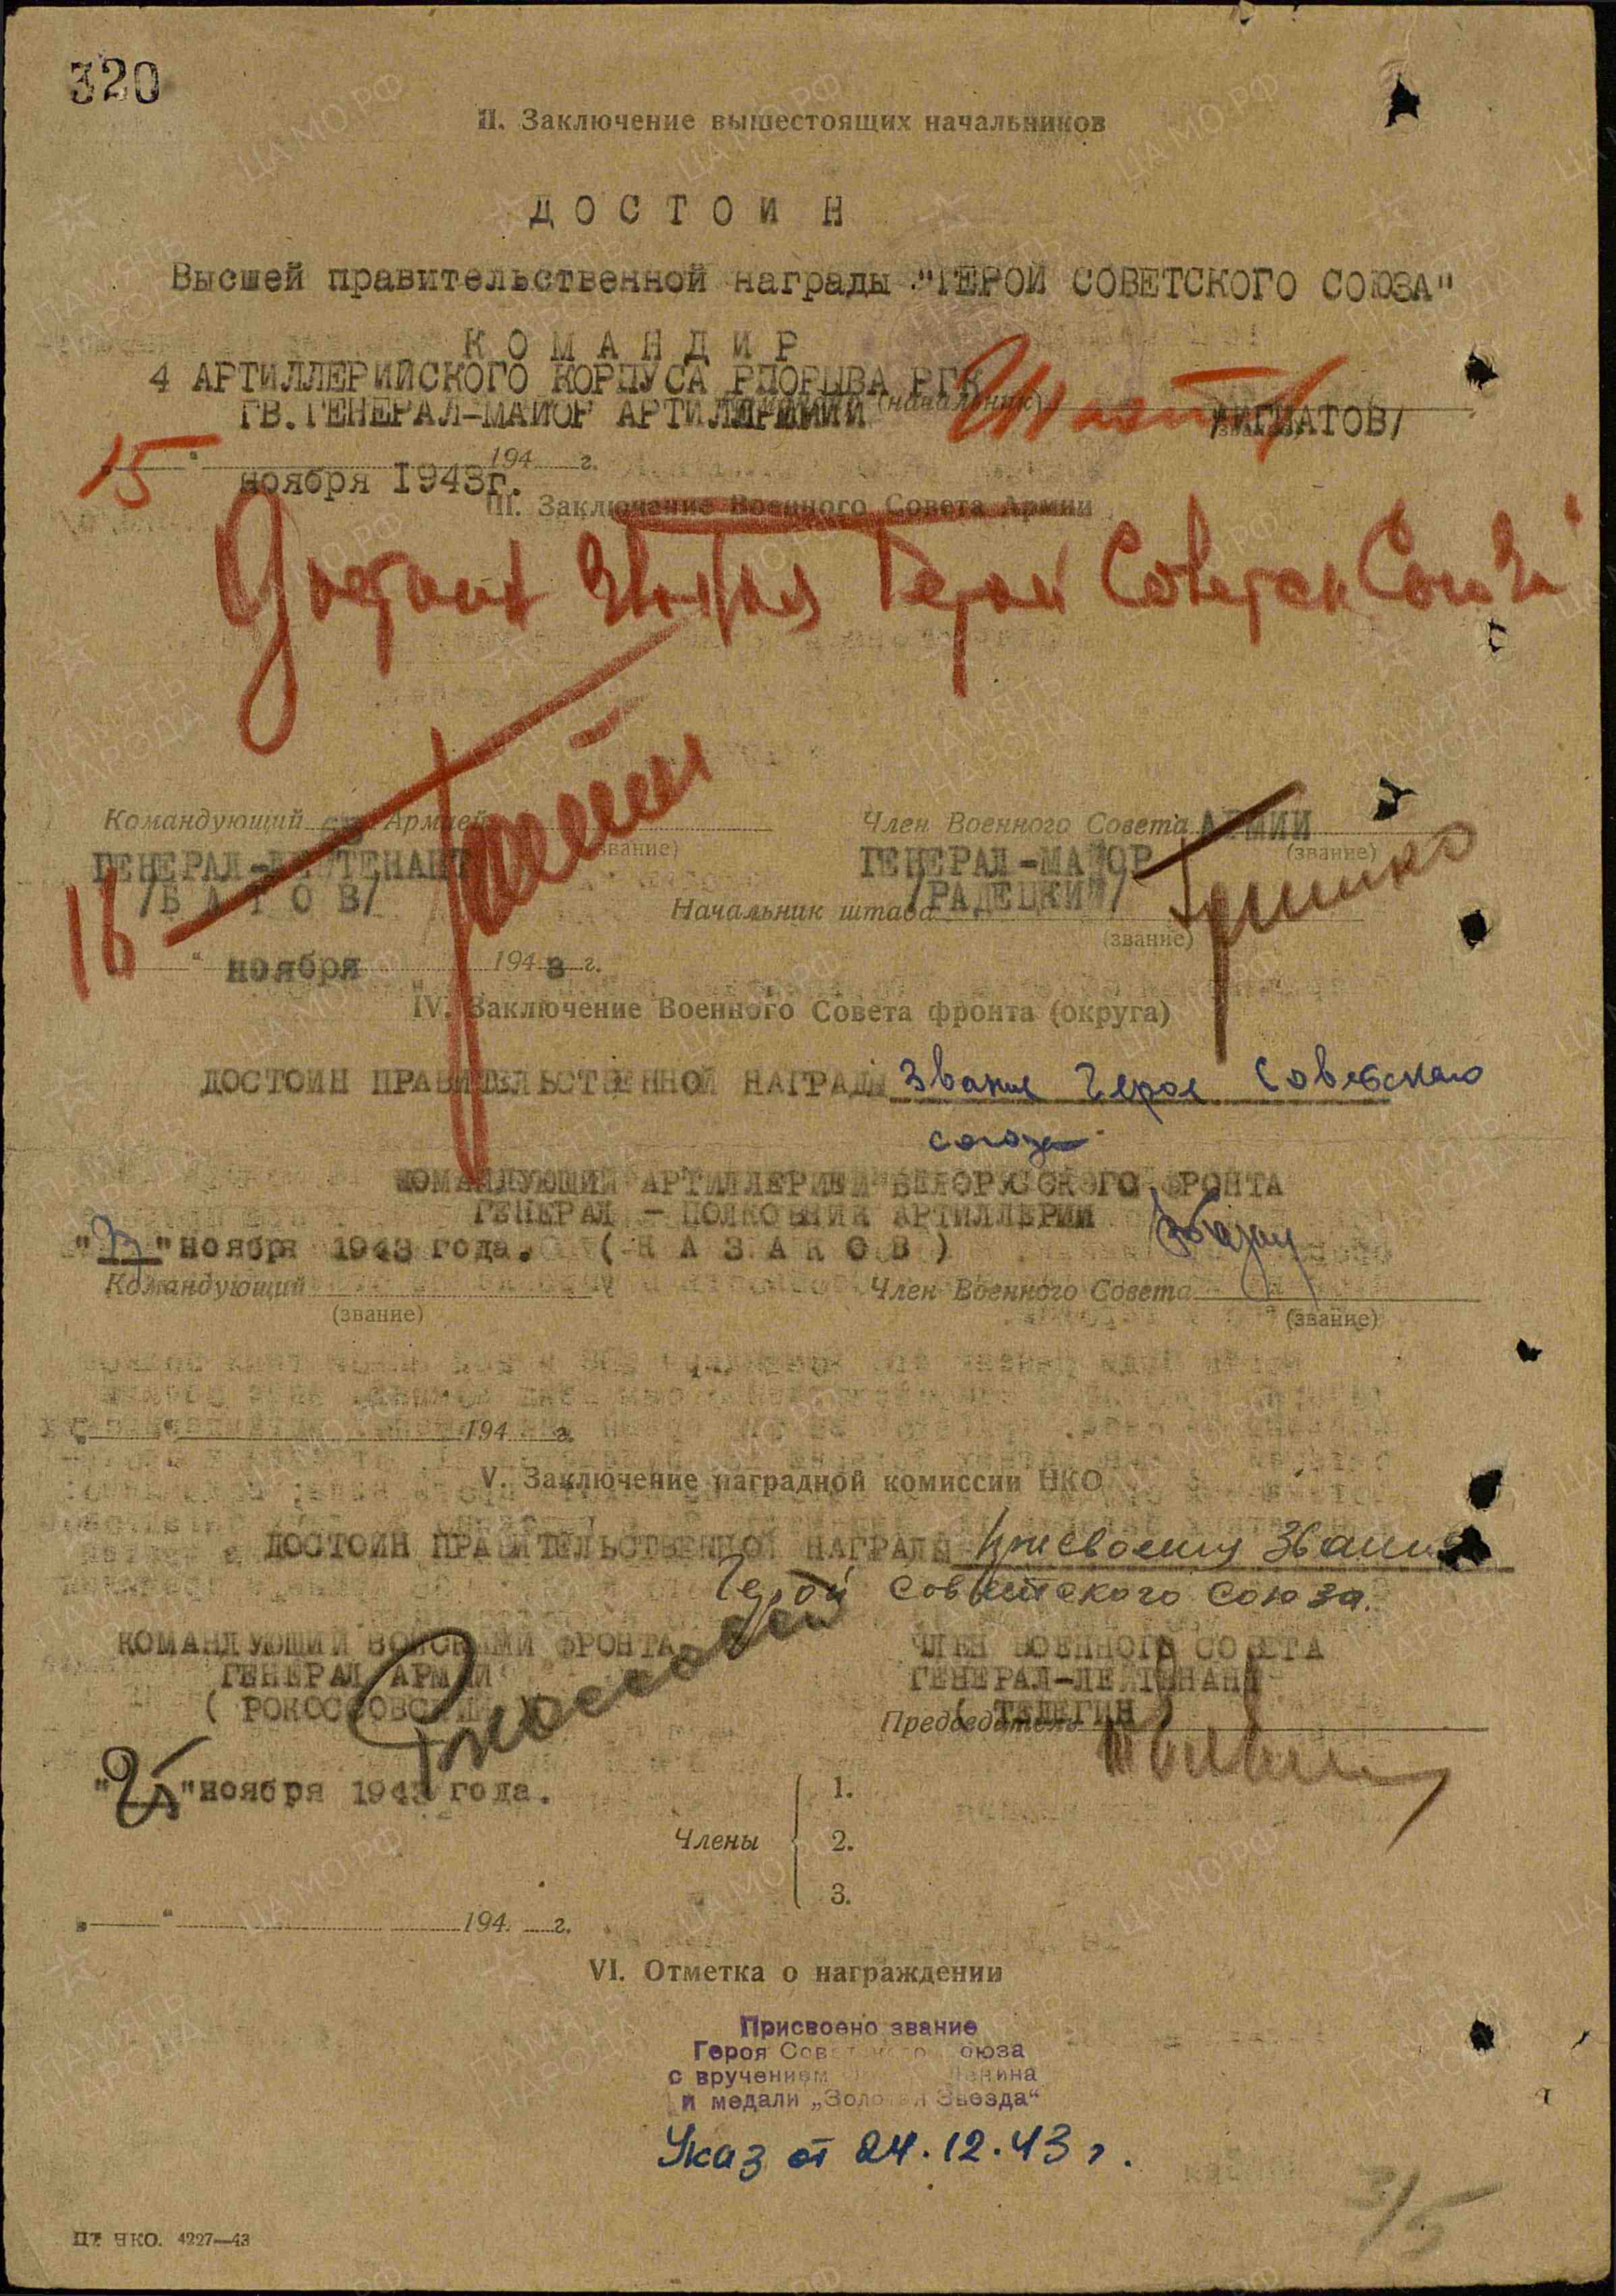 320
II. Заключение вышестоящих начальников
ДОСТОИН
Высшей правительственной награды "ГЕРОЙ СОВЕТСКОГО СОЮЗА"
КОМАНДИР
4 АРТИЛЛЕРИЙСКОГО КОРПУСА РПОРЫВА РГК
ГВ.ГЕНЕРАЛ-МАЙОР АРТИЛЛЕРИИ (начальник) /ИГНАТОВ/
15 194 г.
ноября 1943г.
III. Заключение Военного Совета Армии
Достоин звания Герой Советск Союза
Командующий Армией Член Военного Совета АРМИИ
(звание) (звание)
ГЕНЕРАЛ-ЛЕЙТЕНАНТ ГЕНЕРАЛ-МАЙОР
/БАТОВ/ /РАДЕЦКИЙ/
Начальник штаба
(звание)
16 ноября 1943 г.
IV. Заключение Военного Совета фронта (округа)
ДОСТОИН ПРАВИТЕЛЬСТВЕННОЙ НАГРАДЫ звание Героя Советского
союза
КОМАНДУЮЩИЙ АРТИЛЛЕРИЕЙ БЕЛОРУССКОГО ФРОНТА
ГЕНЕРАЛ - ПОЛКОВНИК АРТИЛЛЕРИИ
" " ноября 1943 года. (КАЗАКОВ)
Командующий Член Военного Совета
(звание) (звание)
" " 194 г.
V. Заключение наградной комиссии НКО
ДОСТОИН ПРАВИТЕЛЬСТВЕННОЙ НАГРАДЫ присвоения звания
Герой Советского Союза.
КОМАНДУЮЩИЙ ВОЙСКАМИ ФРОНТА ЧЛЕН ВОЕННОГО СОВЕТА
ГЕНЕРАЛ АРМИИ ГЕНЕРАЛ-ЛЕЙТЕНАНТ
(РОКОССОВСКИЙ) (ТЕЛЕГИН)
Председатель
"25" ноября 1943 года.
Члены
1.
2.
3.
" " 194 г.
VI. Отметка о награждении
Присвоено звание
Героя Советского Союза
с вручением Ленина
и медали „Золотая Звезда“
Указ от 24.12.43 г.
3/5
ЦТ НКО. 4227—43
ЦА МО РФ
ПАМЯТЬ НАРОДА